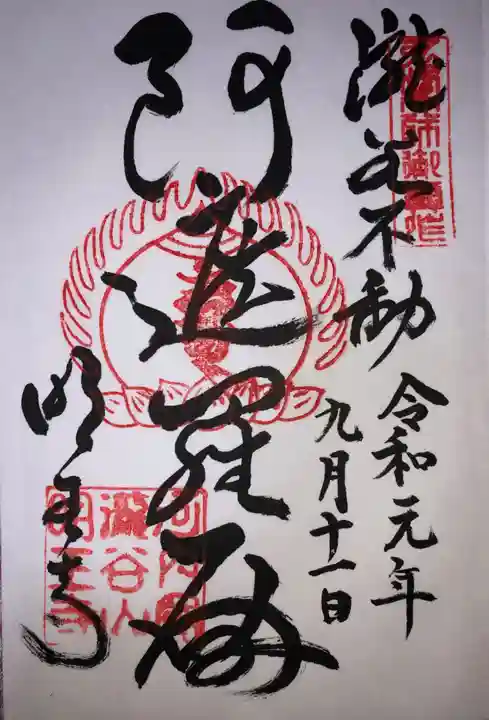 瀧谷不動
令和元年
九月十一日
阿遮羅敬
明王寺
河内國
瀧谷山
明王寺